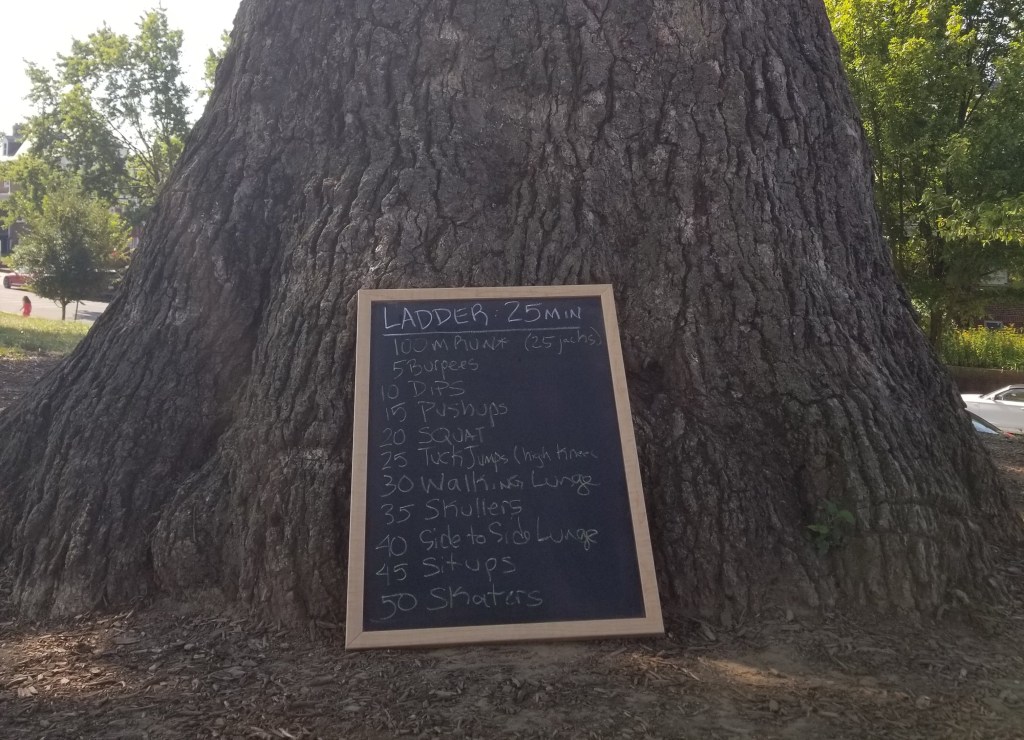 LADDER: 25 MIN
100 m RUN* (25 jacks)
5 Burpees
10 DIPS
15 Pushups
20 SQUAT
25 Tuck Jumps (high knee
30 Walking Lunge
35 Skullers
40 Side to Side Lunge
45 Situps
50 Skaters